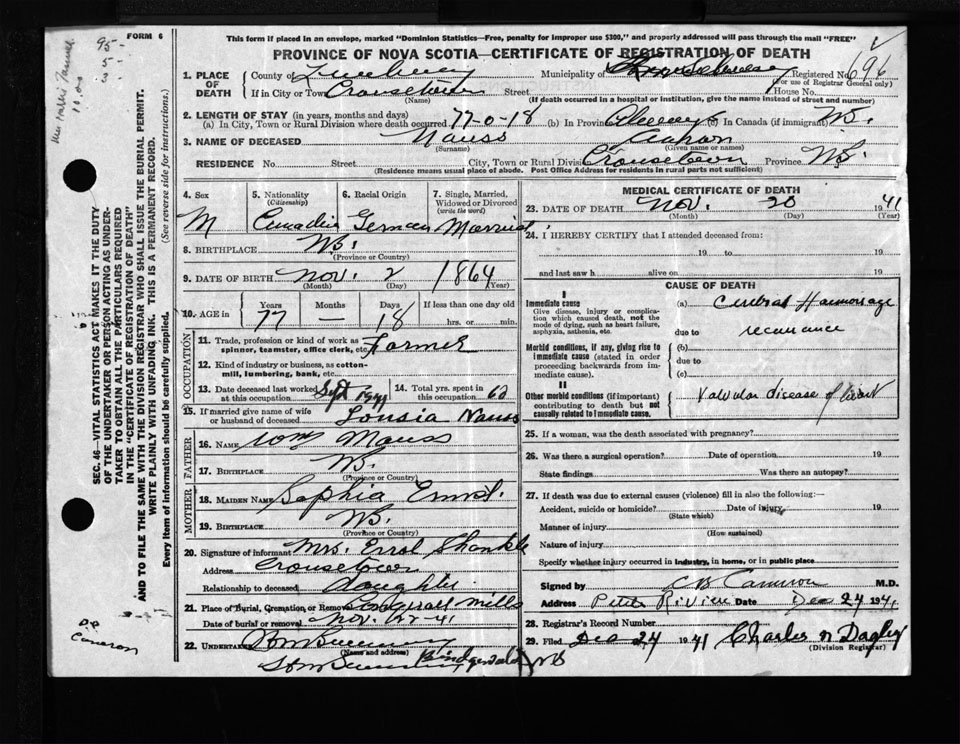 FORM 6
95-
5-
3-
10.00
This form if placed in an envelope, marked "Dominion Statistics—Free, penalty for improper use $300," and properly addressed will pass through the mail "FREE"
PROVINCE OF NOVA SCOTIA—CERTIFICATE OF REGISTRATION OF DEATH
1. PLACE OF DEATH County of Lunenburg Municipality of Registered No. 696
(For use of Registrar General only)
If in City or Town Crousetown Street House No.
(Name) (If death occurred in a hospital or institution, give the name instead of street and number)
2. LENGTH OF STAY (in years, months and days)
(a) In City, Town or Rural Division where death occurred 77-0-18 (b) In Province Always (c) In Canada (if immigrant) NS.
3. NAME OF DECEASED Nauss
(Surname) (Given name or names)
RESIDENCE No. Street City, Town or Rural Division Crousetown Province NS.
(Residence means usual place of abode. Post Office Address for residents in rural parts not sufficient)
4. Sex M
5. Nationality (Citizenship) Canadian
6. Racial Origin German
7. Single, Married, Widowed or Divorced (write the word) Married
8. BIRTHPLACE NS.
(Province or Country)
9. DATE OF BIRTH Nov. 2 1864
(Month) (Day) (Year)
10. AGE in Years Months Days If less than one day old
77 — 18 hrs. or min.
OCCUPATION
11. Trade, profession or kind of work as spinner, teamster, office clerk, etc. Farmer
12. Kind of industry or business, as cotton-mill, lumbering, bank, etc.
13. Date deceased last worked at this occupation Sept 1941
14. Total yrs. spent in this occupation 60
15. If married give name of wife or husband of deceased Lousia Nauss
FATHER
16. NAME Wm Nauss
17. BIRTHPLACE NS.
(Province or Country)
MOTHER
18. MAIDEN NAME Sophia Ernst.
19. BIRTHPLACE NS.
(Province or Country)
20. Signature of informant Mrs. Errol Shankle
Address Crousetown
Relationship to deceased daughter
21. Place of Burial, Cremation or Removal Conquerall Mills
Date of burial or removal Nov. 22-41
22. UNDERTAKER
(Name and address)
Bridgewater NS
MEDICAL CERTIFICATE OF DEATH
23. DATE OF DEATH Nov. 20 1941
(Month) (Day) (Year)
24. I HEREBY CERTIFY that I attended deceased from:
19 to 19
and last saw h alive on 19
CAUSE OF DEATH
I
Immediate cause
Give disease, injury or complication which caused death, not the mode of dying, such as heart failure, asphyxia, asthenia, etc.
(a) Cerebral Haemorrhage
due to recurrence
Morbid conditions, if any, giving rise to immediate cause (stated in order proceeding backwards from immediate cause).
(b)
due to
(c)
II
Other morbid conditions (if important) contributing to death but not causally related to immediate cause.
Valvular disease of heart
25. If a woman, was the death associated with pregnancy?
26. Was there a surgical operation? Date of operation 19
State findings Was there an autopsy?
27. If death was due to external causes (violence) fill in also the following:—
Accident, suicide or homicide? Date of injury 19
(State which)
Manner of injury
(How sustained)
Nature of injury
Specify whether injury occurred in industry, in home, or in public place
Signed by C B Cameron M.D.
Address Petite Riviere Date Dec 24 1941
28. Registrar's Record Number
29. Filed Dec 24 1941 Charles N Dagley
(Division Registrar)
SEC. 46—VITAL STATISTICS ACT MAKES IT THE DUTY
OF THE UNDERTAKER OR PERSON ACTING AS UNDER-
TAKER TO OBTAIN ALL THE PARTICULARS REQUIRED
IN THE "CERTIFICATE OF REGISTRATION OF DEATH"
AND TO FILE THE SAME WITH THE DIVISION REGISTRAR WHO SHALL ISSUE THE BURIAL PERMIT.
WRITE PLAINLY WITH UNFADING INK. THIS IS A PERMANENT RECORD.
Every item of information should be carefully supplied. (See reverse side for instructions.)
Cameron